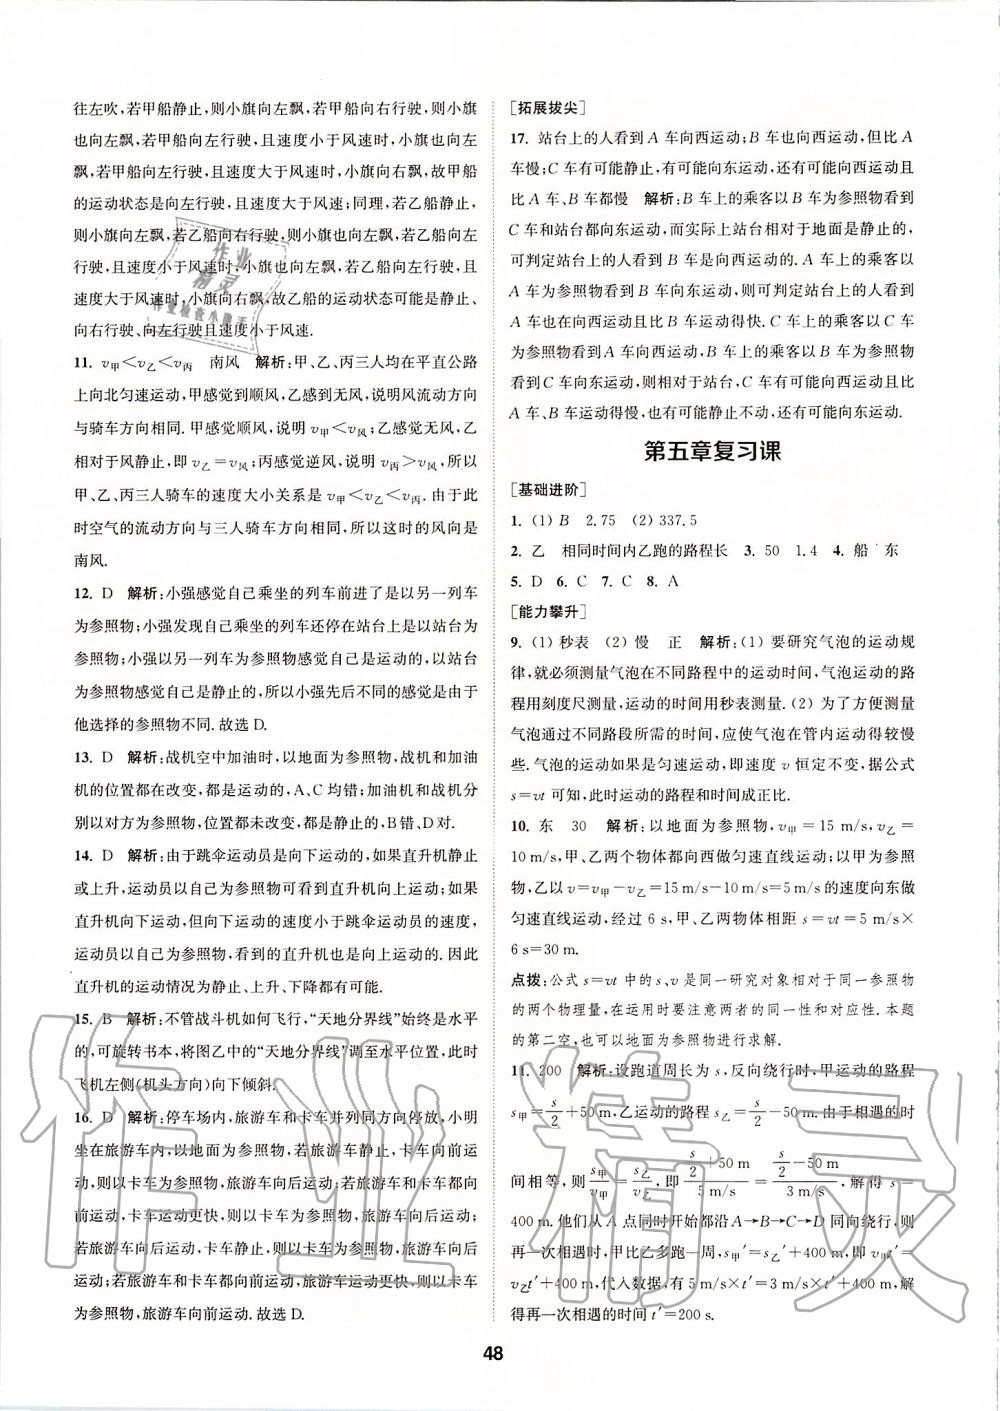 往左吹,若甲船静止,则小旗向左飘,若甲船向右行驶,则小旗
也向左飘,若甲船向左行驶,且速度小于风速时,小旗也向左
飘,若甲船向左行驶,且速度大于风速时,小旗向右飘,故甲船
的运动状态是向左行驶,且速度大于风速;同理,若乙船静止,
则小旗向左飘,若乙船向右行驶,则小旗向左飘,若乙船向左行
驶,且速度小于风速时,小旗也向左飘,若乙船向左行驶,且
速度大于风速时,小旗向右飘,故乙船的运动状态可能是静止、
向右行驶、向左行驶且速度小于风速.
11. v甲<v乙<v丙 南风 解析:甲、乙、丙三人均在平直公路
上向北匀速运动,甲感觉到顺风,乙感到无风,说明风流动方向
与骑车方向相同.甲感觉顺风,说明 v甲<v风;乙感觉无风,乙
相对于风静止,即 v乙=v风;丙感觉逆风,说明 v丙>v风,所以
甲、乙、丙三人骑车的速度大小关系是 v甲<v乙<v丙.由于此
时空气的流动方向与三人骑车方向相同,所以这时的风向是
南风.
12. D 解析:小强感觉自己乘坐的列车前进了是以另一列车
为参照物;小强发现自己乘坐的列车还停在站台上是以站台为
参照物;小强以另一列车为参照物感觉自己是运动的,以站台
为参照物感觉自己是静止的,所以小强先后不同的感觉是由于
他选择的参照物不同.故选D.
13. D 解析:战机空中加油时,以地面为参照物,战机和加油
机的位置都在改变,都是运动的,A、C均错;加油机和战机分
别以对方为参照物,位置都未改变,都是静止的,B错、D对.
14. D 解析:由于跳伞运动员是向下运动的,如果直升机静止
或上升,运动员以自己为参照物可看到直升机向上运动;如果
直升机向下运动,但向下运动的速度小于跳伞运动员的速度,
运动员以自己为参照物,看到的直升机也是向上运动的.因此
直升机的运动情况为静止、上升、下降都有可能.
15. B 解析:不管战斗机如何飞行,“天地分界线”始终是水平
的,可旋转书本,将图乙中的“天地分界线”调至水平位置,此时
飞机左侧(机头方向)向下倾斜.
16. D 解析:停车场内,旅游车和卡车并列同方向停放,小明
坐在旅游车内,以地面为参照物,若旅游车静止,卡车向前运
动,则以卡车为参照物,旅游车向后运动;若旅游车和卡车都向
前运动,卡车运动更快,则以卡车为参照物,旅游车向后运动;
若旅游车向前运动,卡车静止,则以卡车为参照物,旅游车向前
运动;若旅游车和卡车都向前运动,旅游车运动更快,则以卡车
为参照物,旅游车向前运动.故选D.
[拓展拔尖]
17. 站台上的人看到 A 车向西运动;B 车也向西运动,但比 A
车慢;C 车有可能静止,有可能向东运动,还有可能向西运动且
比 A 车、B 车都慢 解析:B 车上的乘客以 B 车为参照物看到
C 车和站台都向东运动,而实际上站台相对于地面是静止的,
可判定站台上的人看到 B 车是向西运动的.A 车上的乘客以
A 车为参照物看到 B 车向东运动,则可判定站台上的人看到
A 车也在向西运动且比 B 车运动得快.C 车上的乘客以 A 车
为参照物看到 C 车向东运动;B 车上的乘客以 B 车为参照物
看到 C 车向东运动,则相对于站台,C 车有可能向西运动且比
A 车、B 车运动得慢,也有可能静止不动,还有可能向东运动.
第五章复习课
[基础进阶]
1. (1) B 2.75 (2) 337.5
2. 乙 相同时间内乙跑的路程长 3. 50 1.4 4. 船 东
5. D 6. C 7. C 8. A
[能力攀升]
9. (1) 秒表 (2) 慢 正 解析:(1) 要研究气泡的运动规
律,就必须测量气泡在不同路程中的运动时间,气泡运动的路
程用刻度尺测量,运动的时间用秒表测量.(2) 为了方便测量
气泡通过不同路段所需的时间,应使气泡在管内运动得较慢
些.气泡的运动如果是匀速运动,即速度 v 恒定不变,据公式
s=vt 可知,此时运动的路程和时间成正比.
10. 东 30 解析:以地面为参照物,v甲=15 m/s,v乙=
10 m/s,甲、乙两个物体都向西做匀速直线运动;以甲为参照
物,乙以 v=v甲-v乙=15 m/s-10 m/s=5 m/s 的速度向东做
匀速直线运动,经过 6 s,甲、乙两物体相距 s=vt=5 m/s×
6 s=30 m.
点拨:公式 s=vt 中的 s、v 是同一研究对象相对于同一参照物
的两个物理量,在运用时要注意两者的同一性和对应性.本题
的第二空,也可以地面为参照物进行求解.
11. 200 解析:设跑道周长为 s,反向绕行时,甲运动的路程
s甲=s/2+50 m,乙运动的路程 s乙=s/2-50 m.由于相遇的时
间相等,则 s甲/v甲=s乙/v乙,即 (s/2+50 m)/(5 m/s)=(s/2-50 m)/(3 m/s),解得 s=
400 m.他们从 A 点同时开始都沿 A→B→C→D 同向绕行,则
再一次相遇时,甲比乙多跑一周,s甲′=s乙′+400 m,即 v甲t′=
v乙t′+400 m,代入数据,有 5 m/s×t′=3 m/s×t′+400 m,解
得再一次相遇的时间 t′=200 s.
48
作业精灵
作业
精灵
作业检查小助手